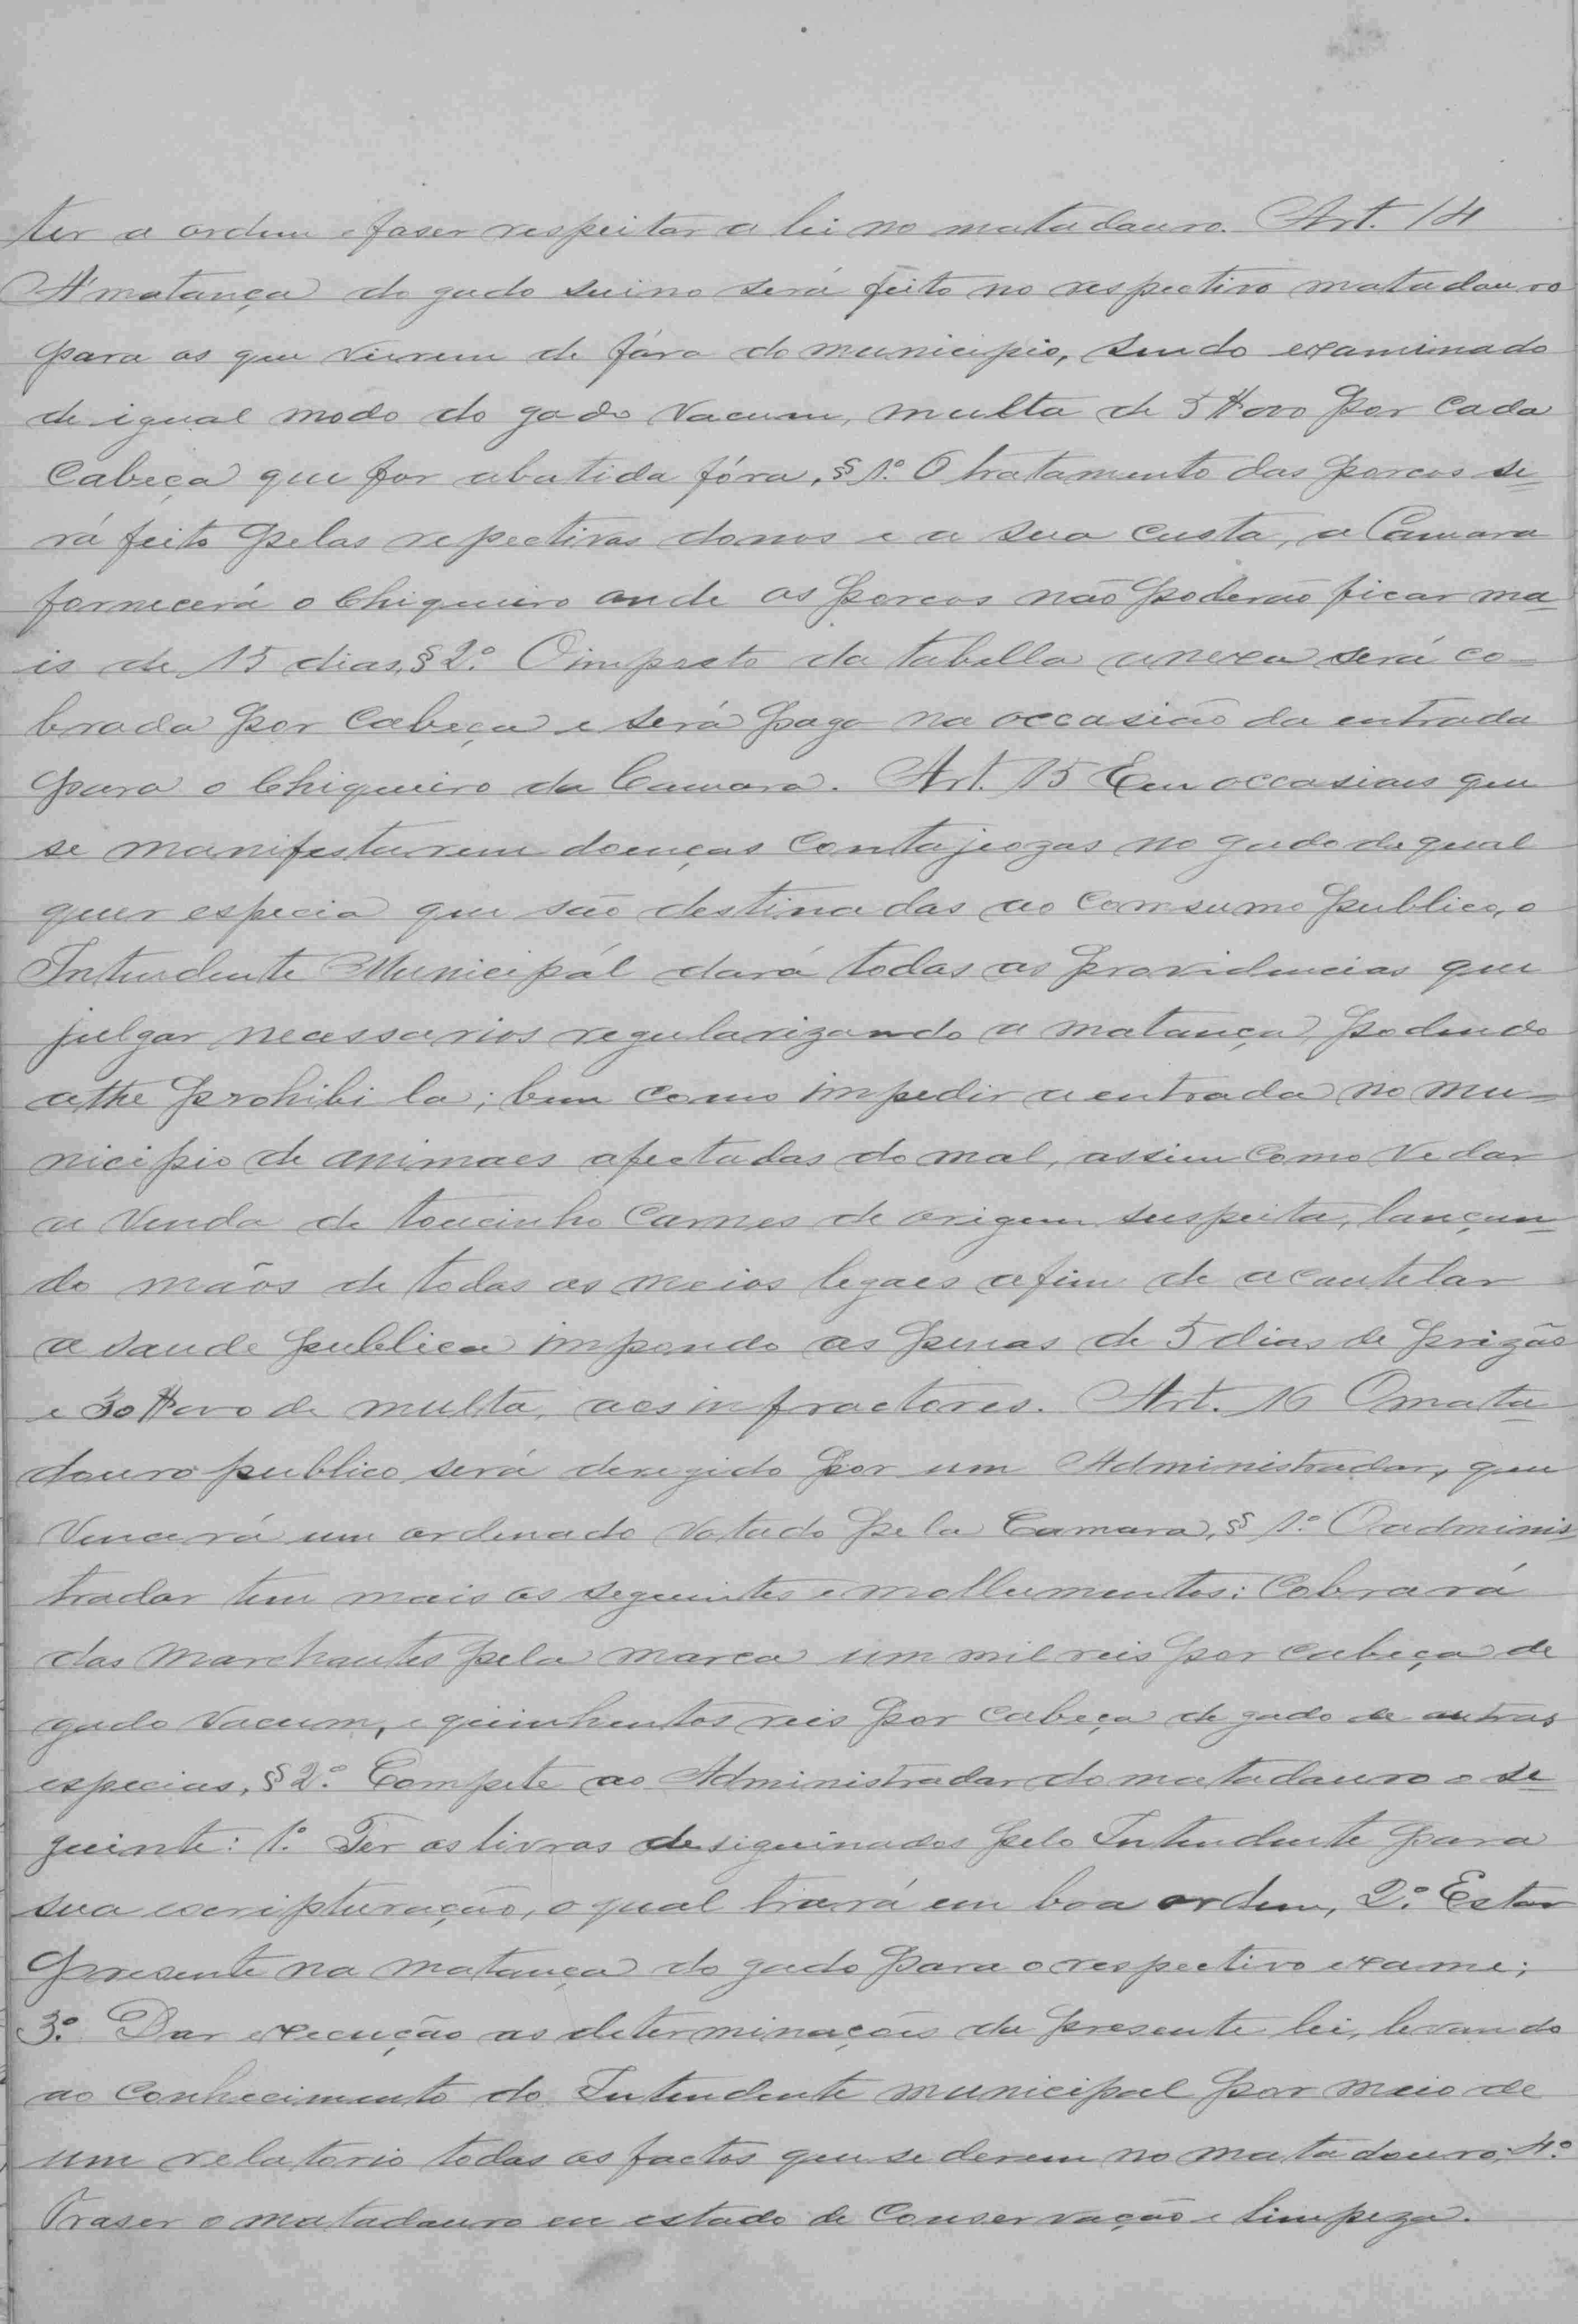 ter a ordem e faser respeitar a lei no matadouro. Art. 14
A matança do gado suino será feito no respectivo matadouro
para os que vierem de fóra do municipio, sendo examinado
de igual modo do gado vacum, multa de 5$000 por cada
cabeça que for abatida fóra, § 1º. O tratamento dos porcos se=
rá feito pelos repectivos donos e a sua custa, a Camara
fornecerá o chiqueiro onde os porcos não poderão ficar ma
is de 15 dias, § 2º. O imposto da tabella anexa será co=
brada por cabeça e será pago na occasião da entrada
para o chiqueiro da Camara. Art. 15 Em occasioes que
se manifestarem doenças contajiozas no gado de qual
quer especia que são destinadas ao comsumo publico, o
Intendente Municipál dará todas as providencias que
julgar necessarios regularizando a matança, podendo
athe prohibi la; bem como impedir a entrada no mu=
nicipio de animaes afectados do mal, assim como vedar
a venda de toucinho carnes de origem suspeita, lançan=
do mãos de todos os meios legaes afim de acautelar
a saude publica impondo as penas de 5 dias de prizão
e 30$000 de multa, aos infractores. Art. 16 O mata=
douro publico será deregido por um Administrador, que
vencerá um ordenado votado pela Camara, § 1º. O adminis
trador tem mais os seguintes emollumentos: Cobrará
dos marchantes pela marca um mil reis por cabeça de
gado vacum, e quinhentos reis por cabeça de gado de outras
especias, § 2º. Compete ao Administrador do matadouro o se=
guinte: 1º. Ter os livros desiguinados pelo Intendente para
sua escripturação, o qual trará em boa ordem, 2º. Estar
presente na matança do gado para o respectivo exame;
3º. Dar execução as determinações da presente lei, levando
ao conhecimento do Intendente municipal por meio de
um relatorio todos os factos que se derem no matadouro, 4º.
Traser o matadouro em estado de conservação e limpeza.